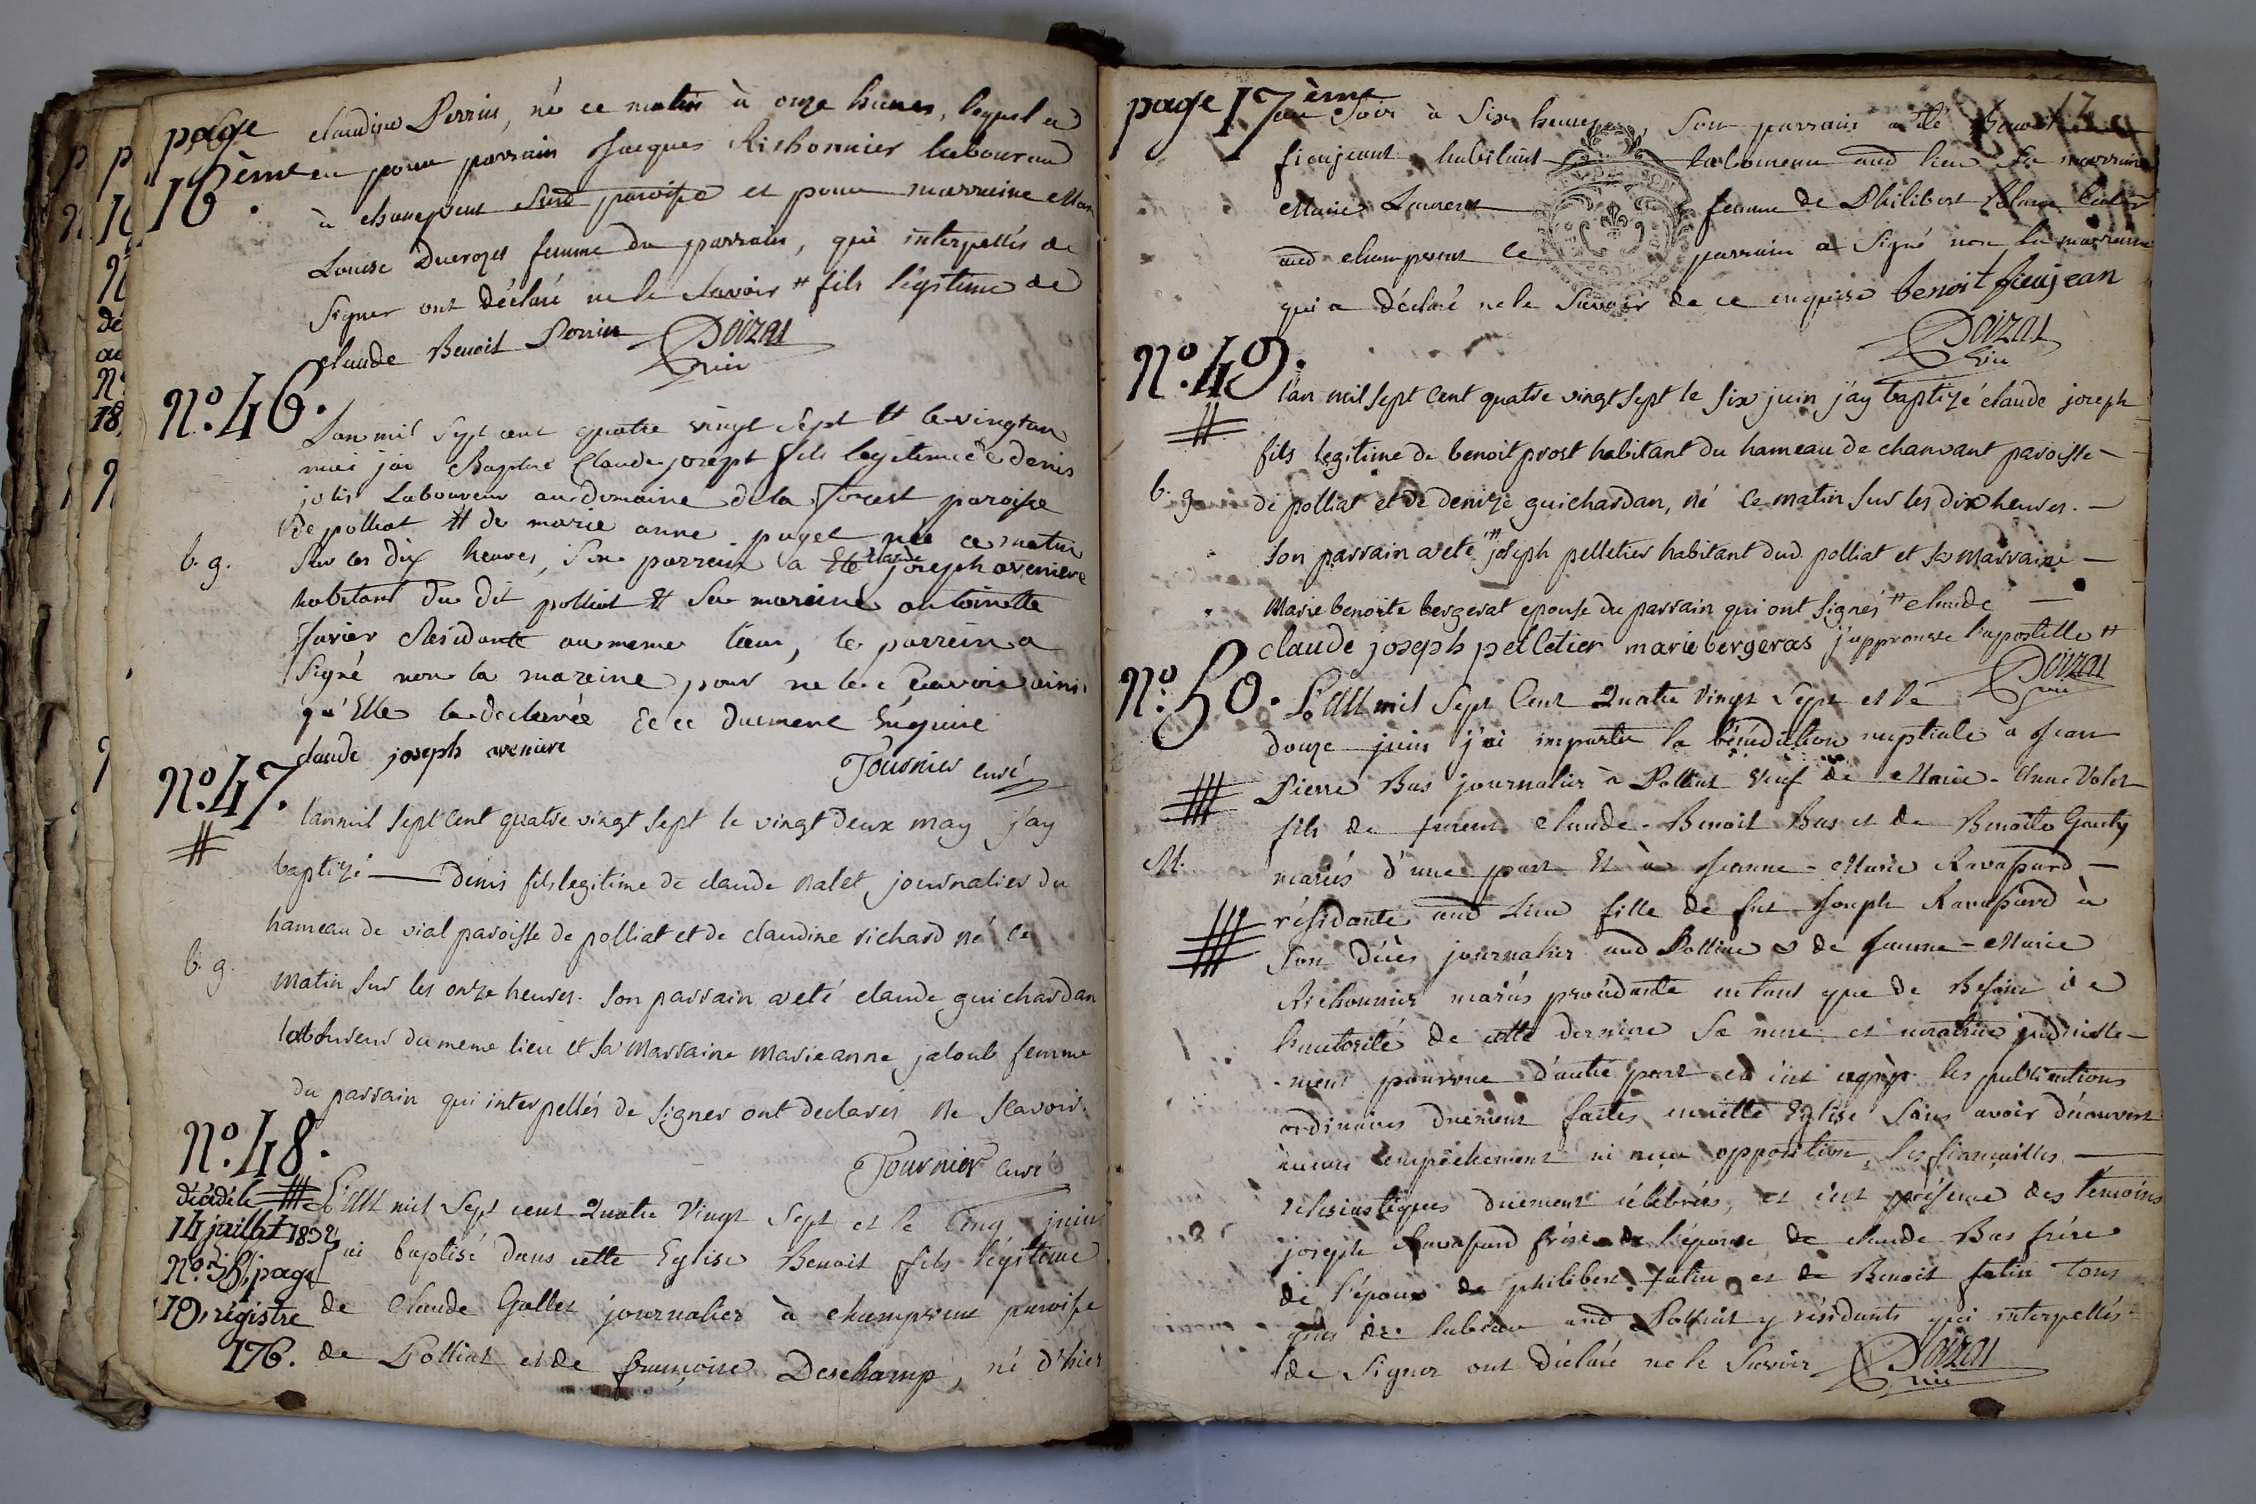 page
16ème.
claudine Perrin, né ce matin à onze heures, lequel a
eu pour parrain Jacques Richonnier laboureur
à champvent susd paroisse et pour marraine Marie
Louise Ducrozet femme du parrain, qui interpellés de
signer ont déclaré ne le savoir # fils légitime de
claude Benoit Perrin
Poizat
N° 46.
L'an mil sept cent quatre vingt sept & le vingt un
mai jai Baptisé Claude joseph fils legitime de denis
joli Laboureur au domaine de la forest paroisse
de polliat & de marie anne puget née ce matin
b. g.
sur les dix heures, son parrein a été claude joseph aveniere
habitant du dit polliat & sa mareine antoinette
favier Residante au meme lieu, le parrein a
signé non la mareine pour ne le scavoir ainsi
qu'Elle la declarée de ce duement Enquise
claude joseph aveniere
Tournier curé
N° 47.
#
l'an mil sept cent quatre vingt sept le vingt deux may j'ay
baptizé — Denis fils legitime de claude nalet, journalier du
hameau de vial paroisse de polliat et de claudine richard né ce
b. g.
matin sur les onze heures. son parrain a eté claude guichardan
laboureur du meme lieu et sa Marraine Marie anne jaloub femme
du parrain qui interpellés de signer ont declarés ne scavoir.
Tournier curé
N° 48.
décédé le
14 juillet 1832,
N° 38, page
10, régistre
176.
L'an mil sept cent Quatre Vingt sept et le Cinq juin
j'ai baptisé dans cette Eglise Benoit fils légitime
de Claude Gallet journalier à champvent paroisse
de Polliat et de françoise Deschamp, né d'hier
page 17ème
17
au soir à six heures, son parrain a été Benoit
fieujeant habitant laboureur aud lieu sa marraine
Marie Laurent femme de Philibert
aud champvent le parrain a signé non la marraine
qui a déclaré ne le savoir de ce enquise benoit fieujean
Poizat
N° 49.
#
l'an mil sept cent quatre vingt sept le six juin j'ay baptizé claude joseph
fils legitime de benoit prost habitant du hameau de chanvant paroisse
b. g.
de polliat et de denize guichardan, né ce matin sur les dix heures.
son parrain a eté # joseph pelletier habitant dud. polliat et sa Marraine
Marie benoite bergerat epouse du parrain qui ont signés # claude
claude joseph pelletier marie bergeras j'approuve l'apostille #
Poizat
N° 50.
L'an mil sept Cent Quatre Vingt sept et le
douze juin j'ai imparti la bénédiction nuptiale à Jean
Pierre Bas journalier à Polliat veuf de Marie-Anne Volet
fils de furent Claude-Benoit Bas et de Benoite Gauty
M.
mariés d'une part Et à Jeanne-Marie Ravassard
résidante aud Lieu fille de fut Joseph Ravassard à
son décès journalier aud Polliat & de Jeanne-Marie
Richonnier mariés procédante en tant que de Besoin de
l'autorité de cette derniere sa mere et curatrice judicielle-
-ment pourvue d'autre part ce fut après les publications
ordinaires duement faites en cette Eglise sans avoir découvert
aucun empêchement ni reçu opposition, les fiançailles
eclesiastiques duement célébrées, et c'est présence des témoins
joseph Ravassard frère de l'épouse de claude Bas frère
de l'époux de philibert jutin et de Benoit jutin Tous
gens de labeur aud Polliat y résidants qui interpellés
de signer ont déclaré ne le savoir
Poizat